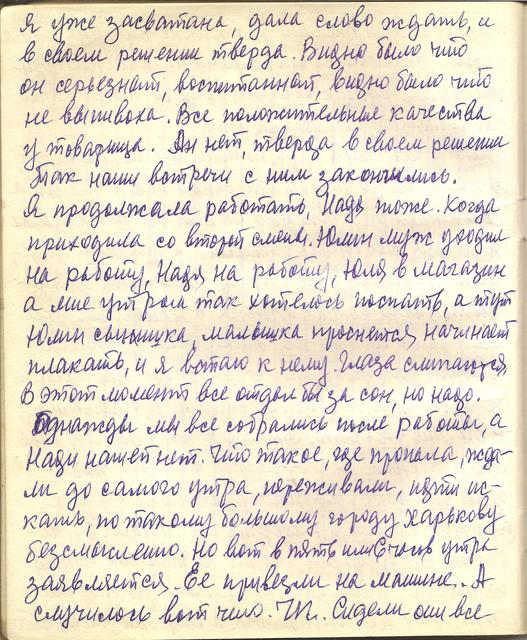 Я уже засватана, дала слово ждать, и
в своем решении тверда. Видно было что
он серьезный, воспитанный, видно было что
не выпивоха. Все положительные качества
у товарища. Ан нет, тверда в своем решении
Так наши встречи с ним закончились.
Я продолжала работать, Надя тоже. Когда
приходила со второй смены. Юлин муж уходил
на работу, Надя на работу, Юля в магазин
а мне утром так хотелось поспать, а тут
Юлин сынишка, малышка проснется, начинает
плакать, и я встаю к нему. Глаза слипаются
В этот момент все отдал бы за сон, но надо.
Однажды мы все собрались после работы, а
Нади нашей нет. Что такое, где пропала, жда-
ли до самого утра, переживали, идти ис-
кать, по такому большому городу Харькову
безсмысленно. Но вот в пять или 6 часов утра
заявляется. Ее привезли на машине. А
случилось вот что. Сидели они все